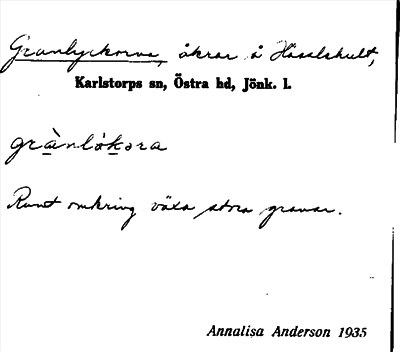 Granlyckorna, åkrar å Hässlehult,
Karlstorps sn, Östra hd, Jönk. l.
grànlókəra
Runt omkring växa stora granar.
Annalisa Anderson 1935